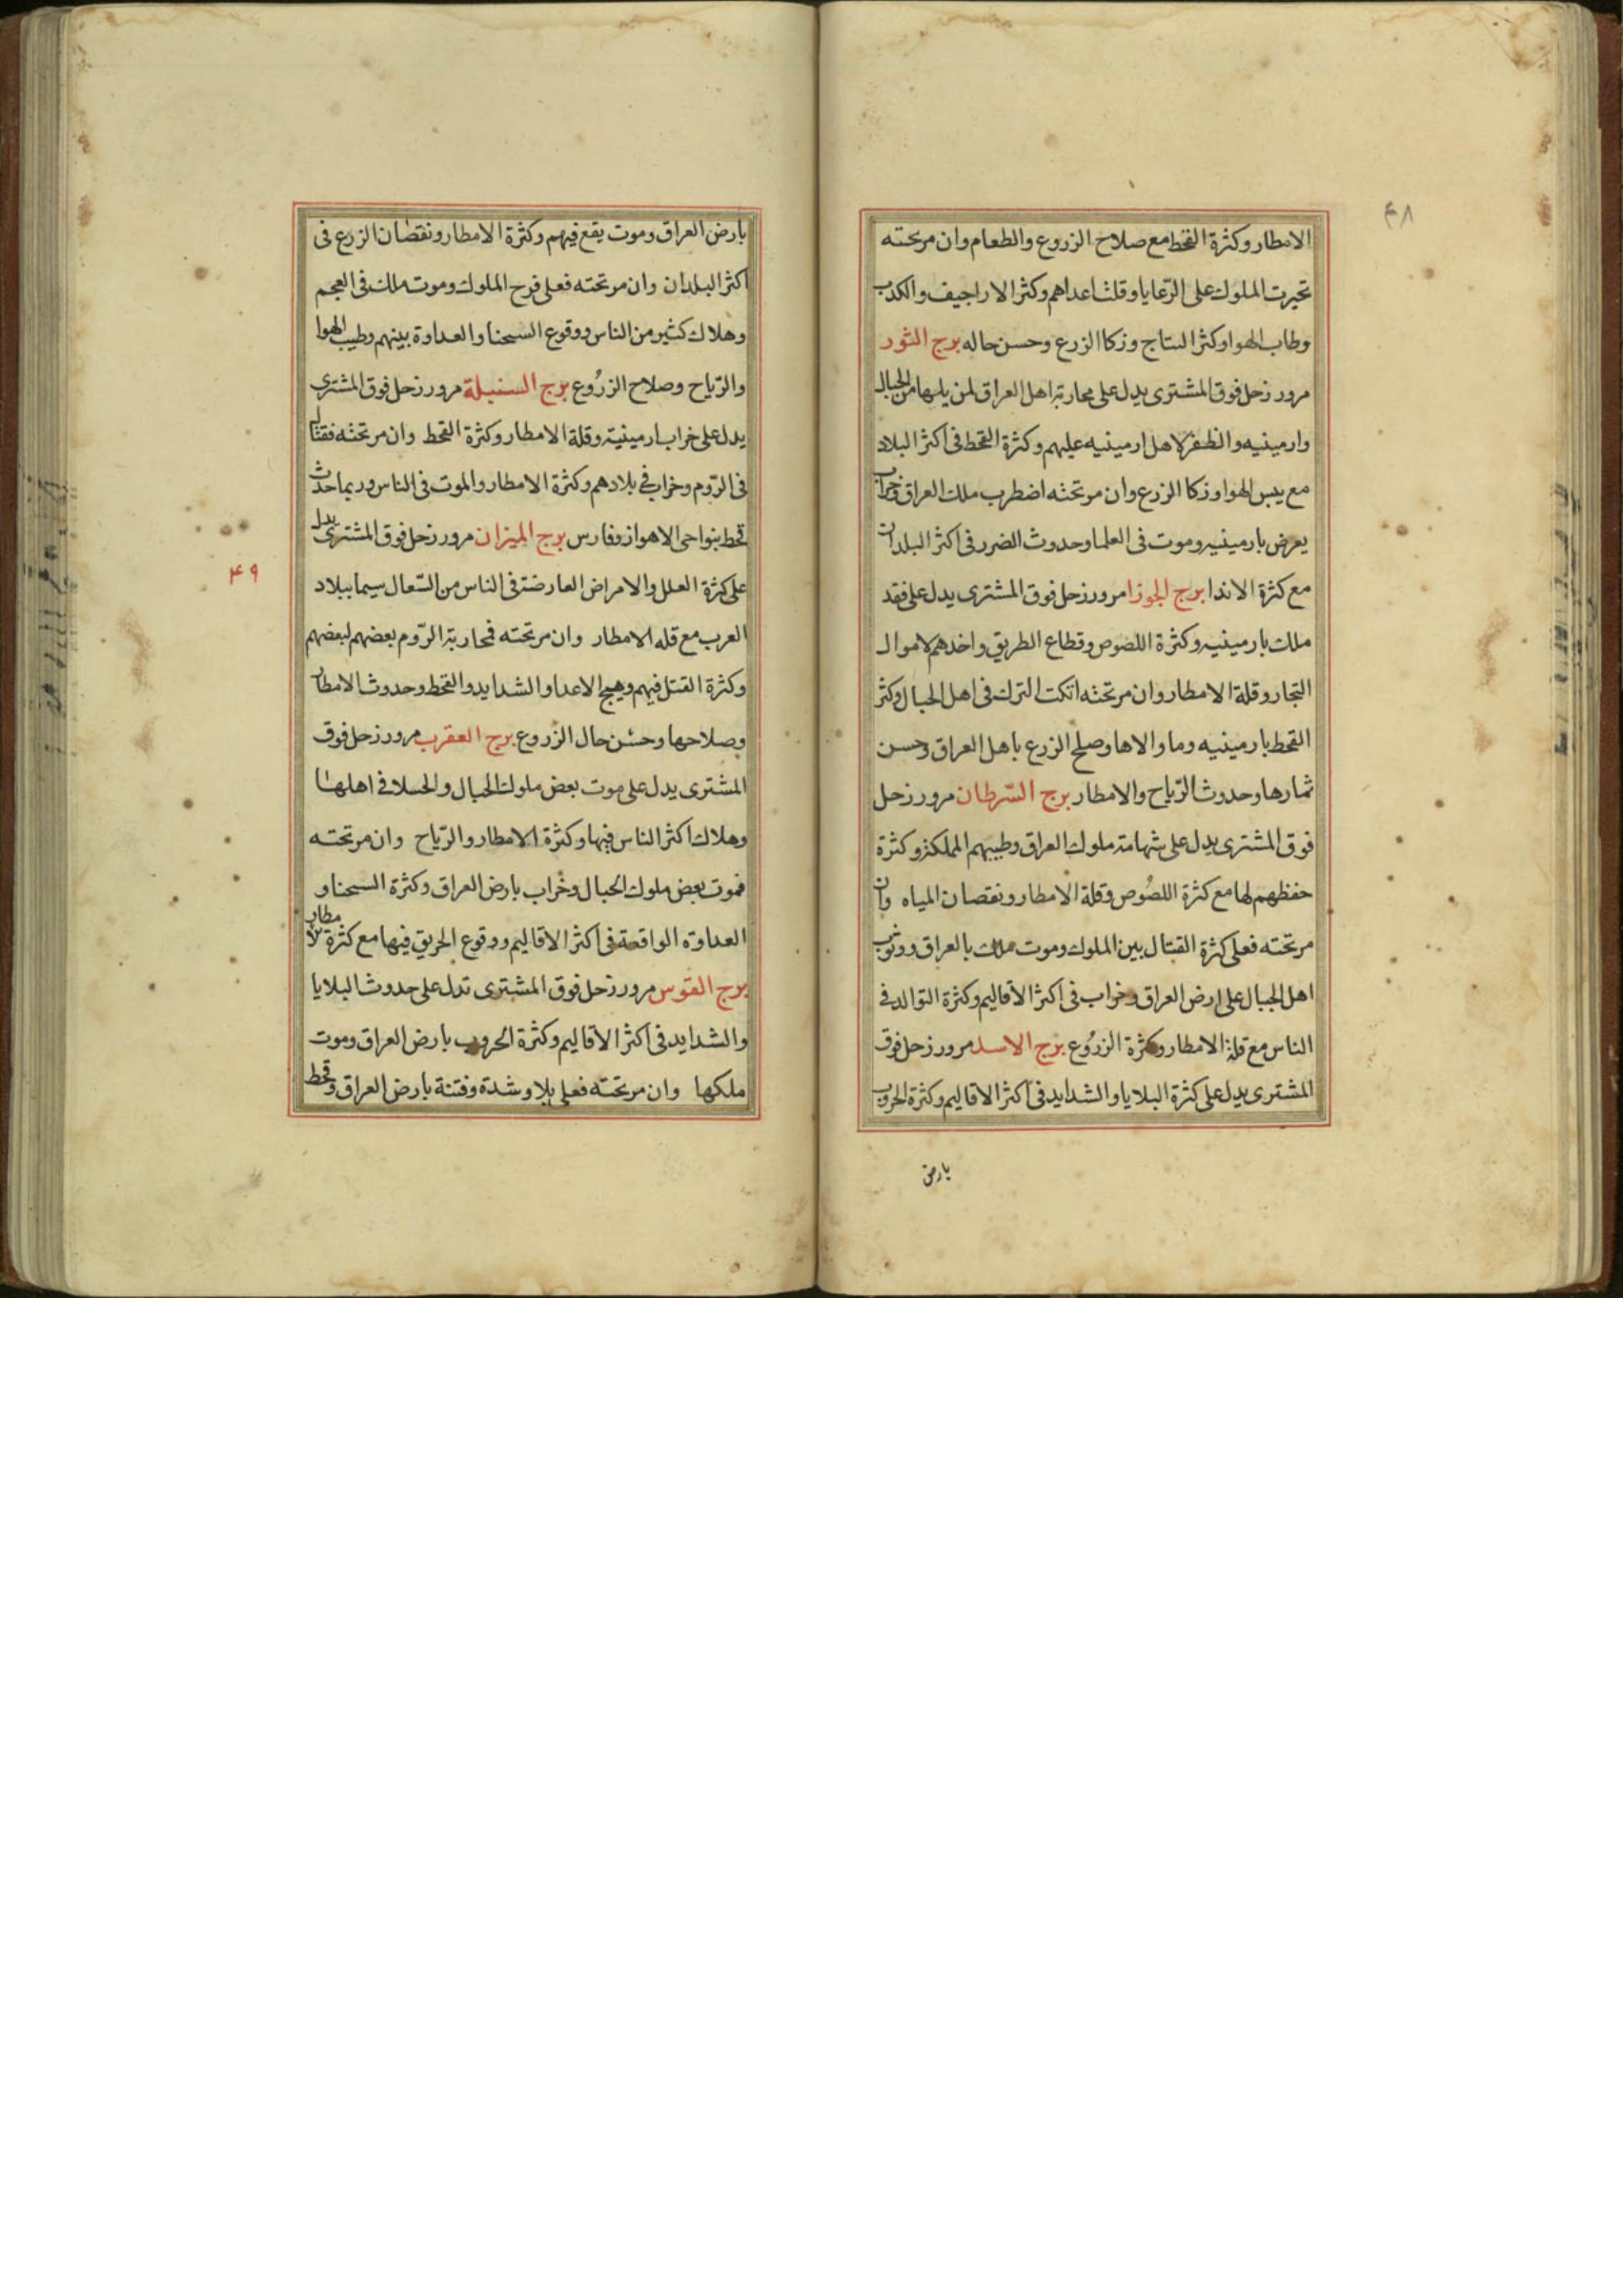 ٤٨
الامطار وكثرة القحط مع صلاح الزروع والطعام وان مر تحته
تحيرت الملوك على الرّعايا وقلت اعداهم وكثر الاراجيف والكدب
وطاب الهوا وكثر النتاج وزكا الزرع وحسن حاله برج الثور
مرور زحل فوق المشترى يدل على محاربة اهل العراق لمن يليها من الجبال
وارمينيه والظفر لاهل ارمينيه عليهم وكثرة القحط فى اكثر البلاد
مع يبس الهوا وزكا الزرع وان مر تحته اضطرب ملك العراق وخراب
يعرض بارمينيه وموت فى العلما وحدوث الضرر فى اكثر البلدان
مع كثرة الاندا برج الجوزا مرور زحل فوق المشترى يدل على فقد
ملك بارمينيه وكثرة اللصوص وقطاع الطريق واخدهم لاموال
التجار وقلة الامطار وان مر تحته انكت الترك فى اهل الجبال وكثر
القحط بارمينيه وما والاها وصلح الزرع باهل العراق وحسن
ثمارها وحدوث الرّياح والامطار برج السّرطان مرور زحل
فوق المشترى يدل على شهامة ملوك العراق وطيبهم المملكة وكثرة
حفظهم لها مع كثرة اللصُوص وقلة الامطار ونقصان المياه وان
مر تحته فعلى كثرة القتال بين الملوك وموت ملك بالعراق ووثوب
اهل الجبال على ارض العراق وخراب فى اكثر الاقاليم وكثرة التوالد فى
الناس مع قلة الامطار وكثرة الزرُوع برج الاسد مرور زحل فوق
المشترى يدل على كثرة البلايا والشدايد فى اكثر الاقاليم وكثرة الحروب
بارض
بارض العراق وموت يقع فيهم وكثرة الامطار ونقصان الزرع فى
اكثر البلدان وان مر تحته فعلى فرح الملوك وموت ملك فى العجم
وهلاك كثير من الناس ووقوع السحنا والعداوة بينهم وطيب الهوا
والرّياح وصلاح الزرُوع برج السنبلة مرور زحل فوق المشترى
يدل على خراب ارمينية وقلة الامطار وكثرة القحط وان مر تحته فقتال
فى الرّوم وخراب فى بلادهم وكثرة الامطار والموت فى الناس وربما حدث
قحط بنواحى الاهواز وفارس برج الميزان مرور زحل فوق المشترى يدل
٤٩
على كثرة العلل والامراض العارضة فى الناس من السّعال سيما ببلاد
العرب مع قله الامطار وان مر تحته فمحاربة الرّوم بعضهم لبعضهم
وكثرة القتل فيهم وهيج الاعدا والشدايد والقحط وحدوث الامطار
وصلاحها وحسْن حال الزروع برج العقرب مرور زحل فوق
المشترى يدل على موت بعض ملوك الجبال والجلا فى اهلها
وهلاك اكثر الناس فيها وكثرة الامطار والرّياح وان مر تحته
فموت بعض ملوك الجبال وخراب بارض العراق وكثرة السحنا و
العداوة الواقعة فى اكثر الاقاليم ووقوع الحريق فيها مع كثرة الامطار
برج القوس مرور زحل فوق المشترى تدل على حدوث البلايا
والشدايد فى اكثر الاقاليم وكثرة الحروب بارض العراق وموت
ملكها وان مر تحته فعلى بلا وشدة وفتنة بارض العراق وقحط